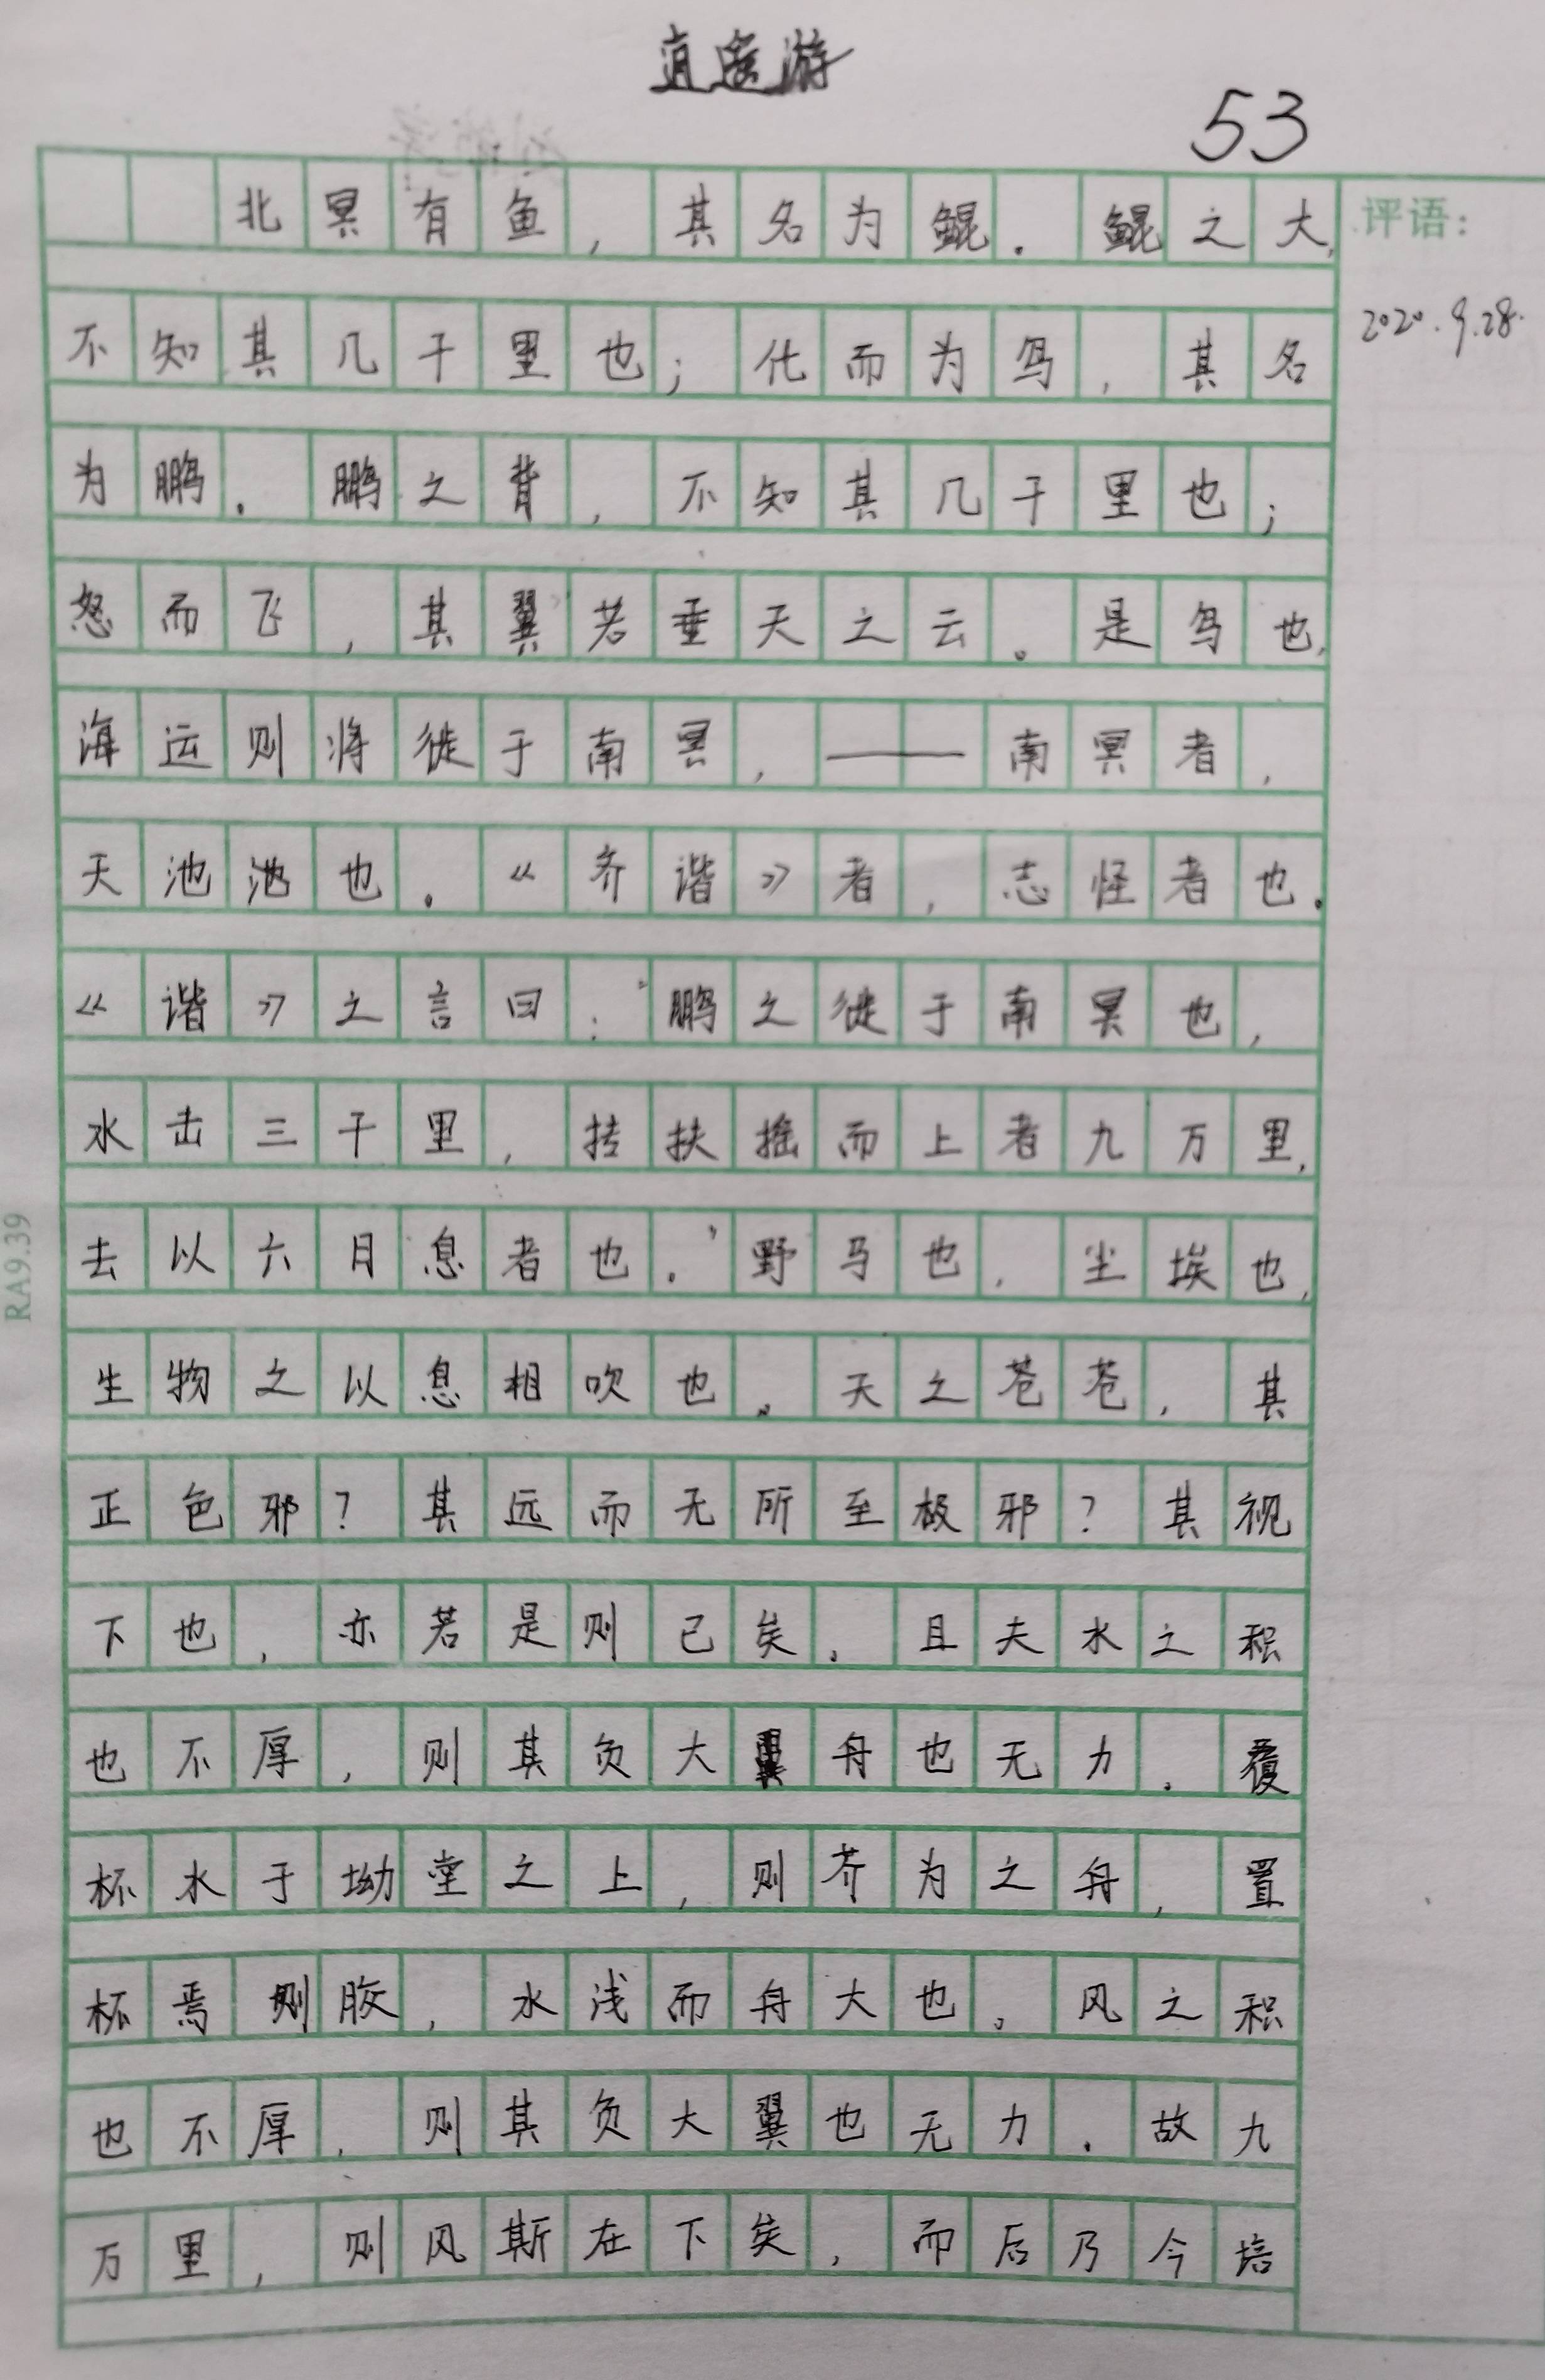 逍遥游
53
北冥有鱼，其名为鲲。鲲之大，
评语：
不知其几千里也；化而为鸟，其名
2020.9.28.
为鹏。鹏之背，不知其几千里也；
怒而飞，其翼若垂天之云。是鸟也，
海运则将徙于南冥，——南冥者，
天池池也。《齐谐》者，志怪者也。
《谐》之言曰：“鹏之徙于南冥也，
水击三千里，抟扶摇而上者九万里，
去以六月息者也。”野马也，尘埃也，
生物之以息相吹也。天之苍苍，其
正色邪？其远而无所至极邪？其视
下也，亦若是则已矣。且夫水之积
也不厚，则其负大翼舟也无力。覆
杯水于坳堂之上，则芥为之舟，置
杯焉则胶，水浅而舟大也。风之积
也不厚，则其负大翼也无力。故九
万里，则风斯在下矣，而后乃今培
RA9.39